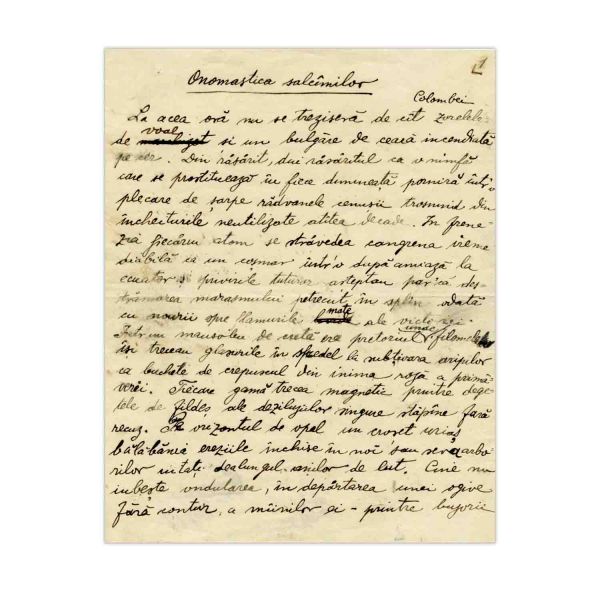 1
Onomastica salcîmilor
Colombei
La acea oră nu se treziseră de cît zorelele
voal
de și un bulgăre de ceară incendiată
pe cer. Din răsărit, din răsăritul ca o nimfă
care se prostituează în fiece dimineață porniră într'o
plecare de șarpe rădvanele cenușii trosnind din
încheiturile neutilizate atîtea decade. In frene-
zia fiecărui atom se străvedea cangrena ireme
diabilă ca un coșmar într'o după amiază la
ecuator și privirile tuturor așteptau parcă des-
trămarea marasmului petrecut în splin odată
cu nourii spre flamurile
mate
ale victoriei.
Intr'un mausoleu de cretă era pretorul
unde
filomele
își treceau glasurile în la subțioara aripilor
ca buchete de crepuscul din inima roșă a primă-
verii. Fiecare gamă trecea magnetic printre dege
tele de fildeș ale deziluziilor singure stăpîne fără
recuz. Pe orizontul de opal un croșet uriaș
bălăbănia ereziile închise în noi sau sera arbo-
rilor uitați dealungul anilor de lut. Cine nu
iubește ondularea, în depărtarea unei ogive
fără contur, a mîinilor ei - printre bujorii